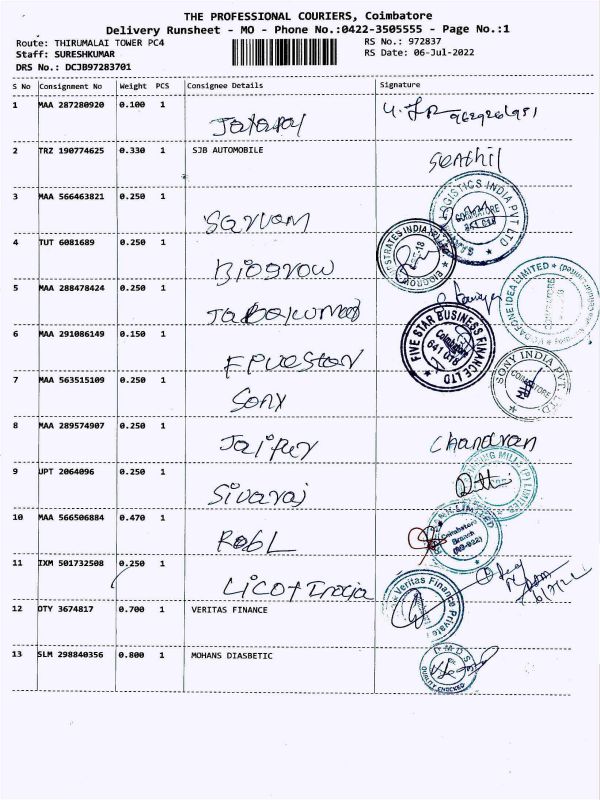 THE PROFESSIONAL COURIERS, Coimbatore
Delivery Runsheet - MO - Phone No.:0422-3505555 - Page No.:1
Route: THIRUMALAI TOWER PC4
RS No.: 972837
Staff: SURESHKUMAR
RS Date: 06-Jul-2022
DRS No.: DCJB97283701
S No Consignment No Weight PCS Consignee Details Signature
1 MAA 287280920 0.100 1
2 TRZ 190774625 0.330 1 SJB AUTOMOBILE Senthil
3 MAA 566463821 0.250 1
LOGISTICS INDIA PVT LTD
COIMBATORE
4 TUT 6081689 0.250 1 Biogrow
5 MAA 288478424 0.250 1
VODAFONE IDEA LIMITED
6 MAA 291086149 0.150 1
FIVE STAR BUSINESS FINANCE LTD
Coimbatore
641 018
7 MAA 563515109 0.250 1 Sony
SONY INDIA PVT. LTD
COIMBATORE
8 MAA 289574907 0.250 1 Jaipur Chandran
9 UPT 2064096 0.250 1 Sivaraj
MILLS (P) LIMITED
10 MAA 566506884 0.470 1 RobL
LIMITED
Coimbatore
Branch
11 IXM 501732508 0.250 1 Licot India
12 OTY 3674817 0.700 1 VERITAS FINANCE
Veritas Finance Private
13 SLM 298840356 0.800 1 MOHANS DIASBETIC
QUALITY CHECKED